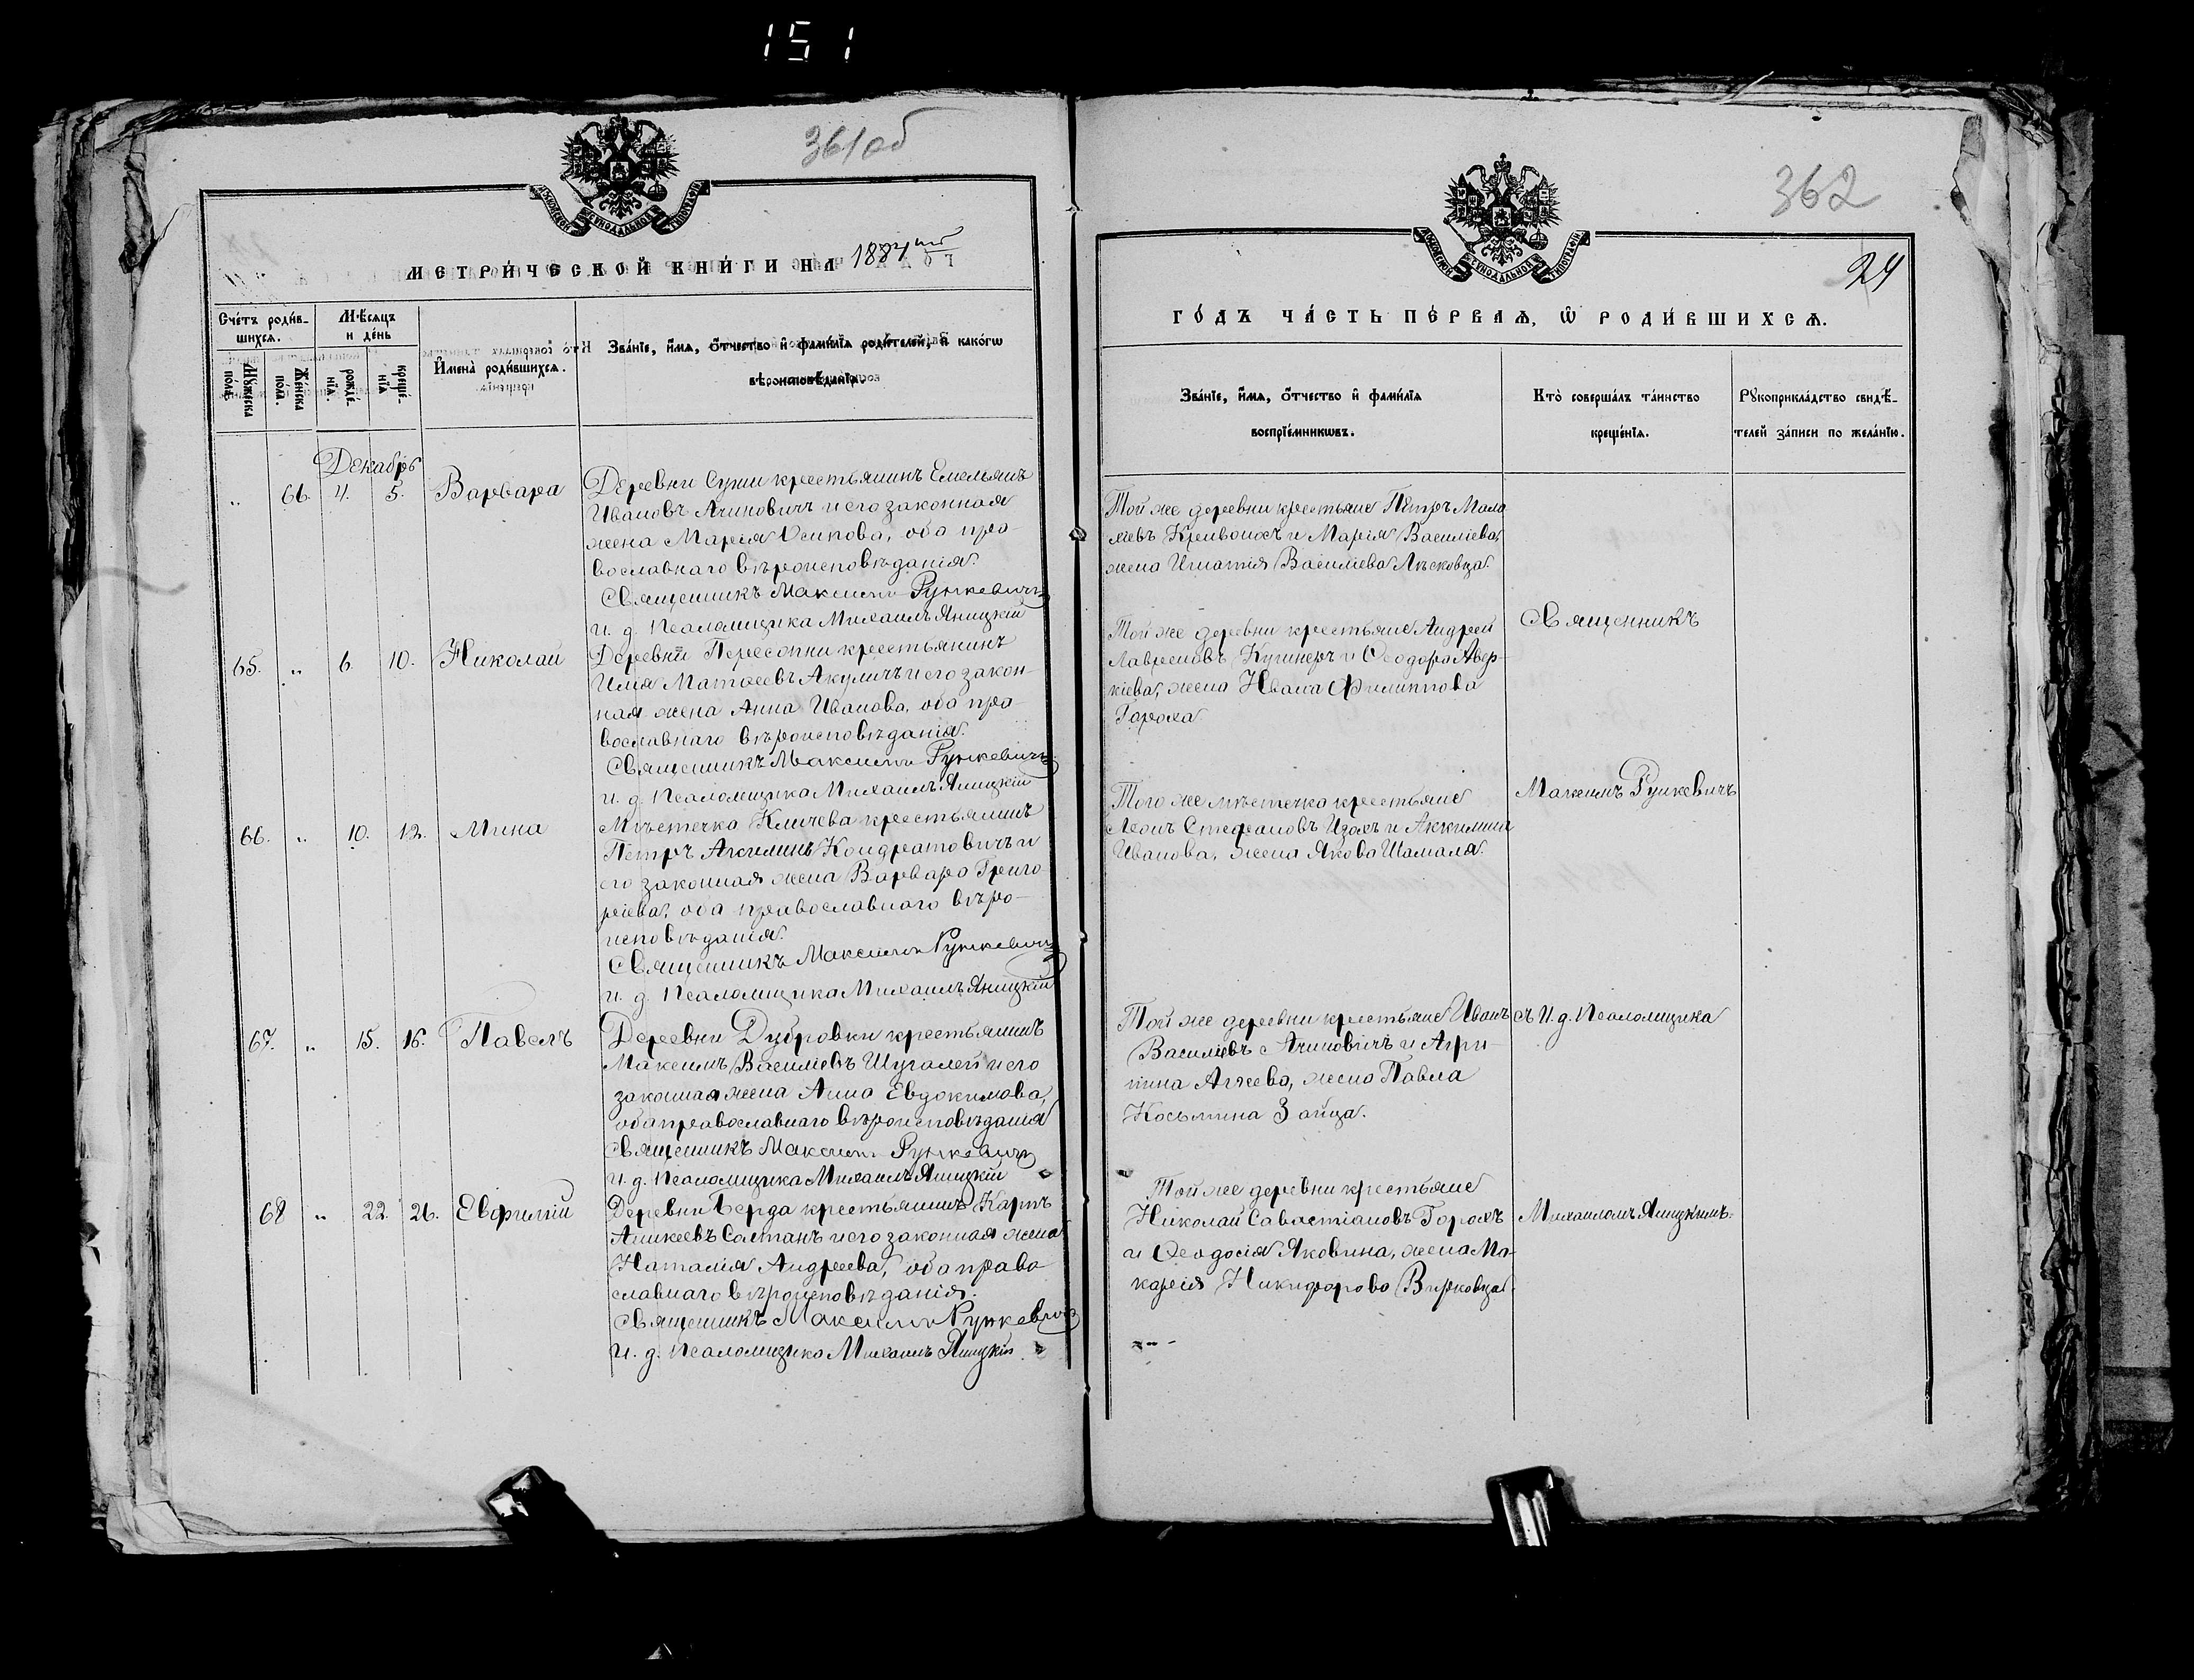 151
361об
МОСКОВСКОЙ СѴНОДАЛЬНОЙ ТИПОГРАФІИ
МЕТРИ́ЧЕСКОЙ КНИ́ГИ НА 1884ый
Сче́тъ роди́в-
шихсѧ.
Мꙋ́жеска
по́ла.
Же́нска
по́ла.
Мѣ́сѧцъ
и де́нь
рожде́-
нїѧ.
креще́-
нїѧ
И҆мена̀ роди́вшихсѧ.
Зва́нїе, и҆́мѧ, ѻ҆́тчество и҆ фами́лїѧ роди́телей, и҆ како́гѡ
вѣроисповѣ́данїѧ.
Декабрь
„ 66. 4. 5. Варвара
Деревни Суши крестьянинъ Емельянъ
Ивановъ Ячиновичъ и его законная
жена Марія Осипова, оба пра-
вославнаго вѣроисповѣданія.
Священникъ Максимъ Рункевичъ
и. д. Псаломщика Михаилъ Яницкій
65. „ 6. 10. Николай
Деревни Пересопни крестьянинъ
Илія Матѳеевъ Акуличъ и его закон-
ная жена Анна Иванова, оба пра-
вославнаго вѣроисповѣданія.
Священникъ Максимъ Рункевичъ
и. д. Псаломщика Михаилъ Яницкій
66. „ 10. 12. Мина
Мѣстечка Кличева крестьянинъ
Петръ Кондратовичъ и
его законная жена Варвара Григо-
ріева, оба православнаго вѣро-
исповѣданія.
Священникъ Максимъ Рункевичъ
и. д. Псаломщика Михаилъ Яницкій
67. „ 15. 16. Павелъ
Деревни Дубровки крестьянинъ
Максимъ Василіевъ Шугалей и его
законная жена Анна Евдокимова,
оба православнаго вѣроисповѣданія
Священникъ Максимъ Рункевичъ
и. д. Псаломщика Михаилъ Яницкій
68 „ 22. 26. Евфимій
Деревни Берда крестьянинъ Карпъ
Аникеевъ Салтанъ и его законная жена
Наталія Андреева, оба право-
славнаго вѣроисповѣданія.
Священникъ Максимъ Рункевичъ
И. д. Псаломщика Михаилъ Яницкій
362
МОСКОВСКОЙ СѴНОДАЛЬНОЙ ТИПОГРАФІИ
24
ГО́ДЪ ЧА́СТЬ ПЕ́РВАѦ, Ѡ҆ РОДИ́ВШИХСѦ.
Зва́нїе, и҆́мѧ, ѻ҆́тчество и҆ фами́лїѧ
воспрїе́мникѡвъ.
Кто̀ соверша́лъ та́инство
креще́нїѧ.
Рꙋкоприкла́дство свидѣ́-
телей за́писи по жела́нїю.
Той же деревни крестьяне Петръ Мала-
хіевъ Кривоносъ и Марія Василіева,
жена Игнатія Василіева Лѣсковца.
Той же деревни крестьяне Андрей
Лавреновъ Кушнеръ и Ѳеодора Авер-
кіева, жена Ивана Филиппова
Гороха
Того же мѣстечка крестьяне
Леонъ Стефановъ Изохъ и Аккилина
Иванова, жена Якова Шамаля.
Той же деревни крестьяне Иванъ
Василіевъ Ячиновичъ и Агри-
пина Аггеева, жена Павла
Косьмина Зайца.
Той же деревни крестьяне
Николай Савастіановъ Горохъ
и Ѳеодосія Яковина, жена Ма-
карія Никифорова Вирковца.
Священникъ
Максимъ Рункевичъ
съ И. д. Псаломщика
Михаиломъ Яницкимъ.